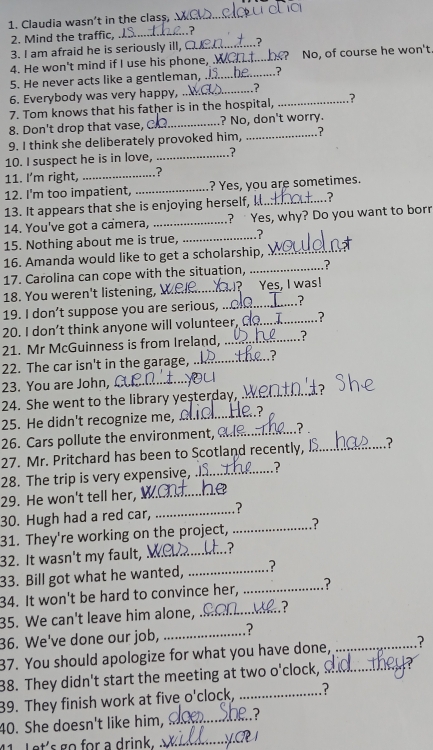 1. Claudia wasn't in the class, was claudia
2. Mind the traffic, is the ?
3. I am afraid he is seriously ill, aren't ?
4. He won't mind if I use his phone, wont he? No, of course he won't.
5. He never acts like a gentleman, is he ?
6. Everybody was very happy, was ?
7. Tom knows that his father is in the hospital, ....................?
8. Don't drop that vase, do ? No, don't worry.
9. I think she deliberately provoked him, ....................?
10. I suspect he is in love, ....................?
11. I'm right, ....................?
12. I'm too impatient, ....................? Yes, you are sometimes.
13. It appears that she is enjoying herself, that ?
14. You've got a camera, ....................? Yes, why? Do you want to borr
15. Nothing about me is true, ....................?
16. Amanda would like to get a scholarship, wouldn't
17. Carolina can cope with the situation, ....................?
18. You weren't listening, were you? Yes, I was!
19. I don't suppose you are serious, do I ?
20. I don't think anyone will volunteer, do I ?
21. Mr McGuinness is from Ireland, is he ?
22. The car isn't in the garage, is the ?
23. You are John, aren't you
24. She went to the library yesterday, wentn't? She
25. He didn't recognize me, did He ?
26. Cars pollute the environment, are the ?
27. Mr. Pritchard has been to Scotland recently, is has ?
28. The trip is very expensive, is the ?
29. He won't tell her, wont he?
30. Hugh had a red car, ....................?
31. They're working on the project, ....................?
32. It wasn't my fault, was it ?
33. Bill got what he wanted, ....................?
34. It won't be hard to convince her, ....................?
35. We can't leave him alone, can we ?
36. We've done our job, ....................?
37. You should apologize for what you have done, ....................?
38. They didn't start the meeting at two o'clock, did they?
39. They finish work at five o'clock, ....................?
40. She doesn't like him, does She ?
41. Let's go for a drink, will you?